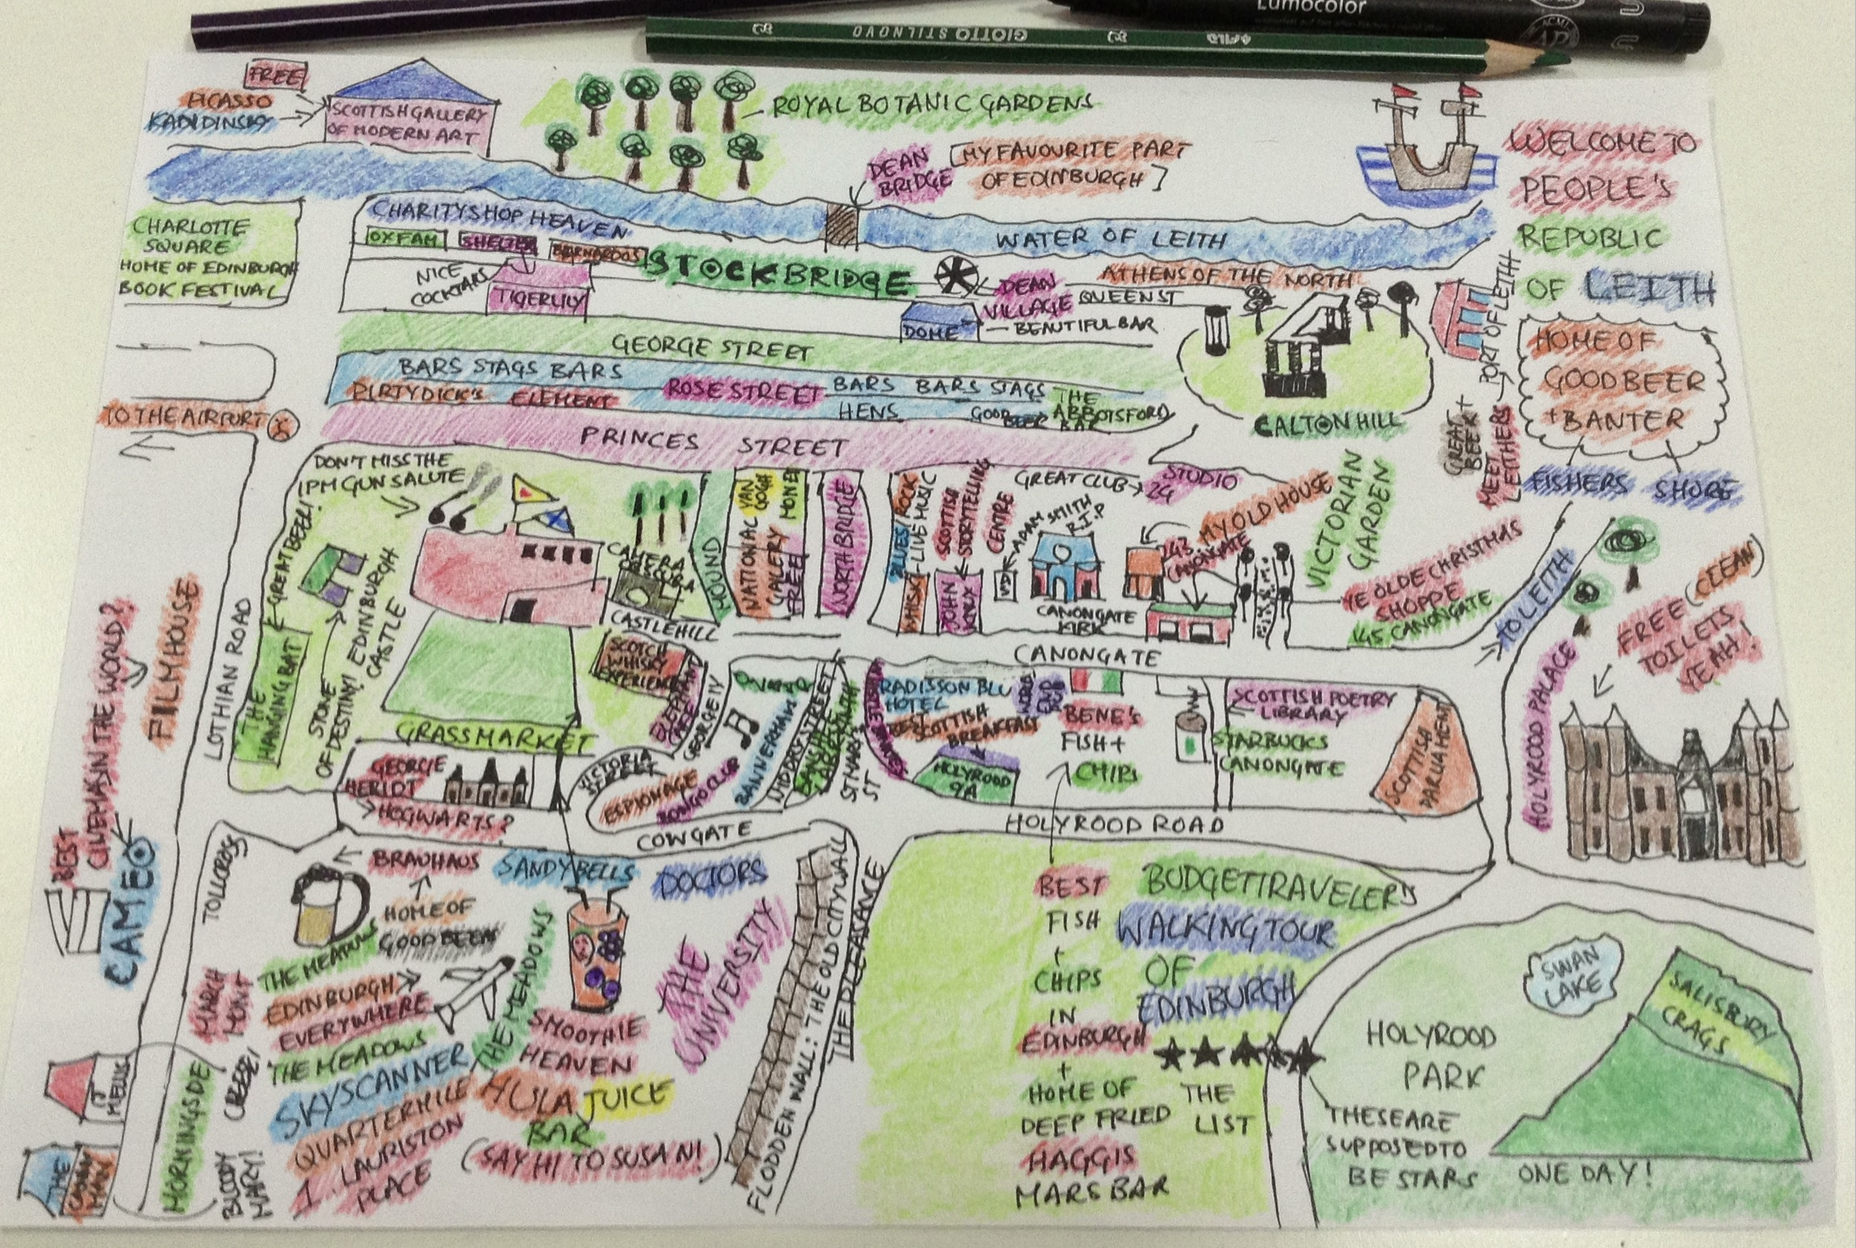 Lumocolor
GIOTTO STILNOVO
FREE
PICASSO
SCOTTISH GALLERY
OF MODERN ART
ROYAL BOTANIC GARDENS
DEAN
BRIDGE
[MY FAVOURITE PART
OF EDINBURGH]
WELCOME TO
PEOPLE'S
REPUBLIC
OF LEITH
CHARLOTTE
SQUARE
HOME OF EDINBURGH
BOOK FESTIVAL
CHARITY SHOP HEAVEN
OXFAM
SHELTER
BARNARDOS
STOCKBRIDGE
WATER OF LEITH
NICE
COCKTAILS
TIGERLILY
DEAN
VILLAGE
ATHENS OF THE NORTH
QUEEN ST
DOME
BEAUTIFUL BAR
PORT OF LEITH
HOME OF
GOOD BEER
+ BANTER
GREAT
BEER +
MEET
LEITHERS
FISHERS
SHORE
GEORGE STREET
BARS STAGS BARS
DIRTY DICK'S
ELEMENT
ROSE STREET
BARS BARS STAGS
HENS
GOOD
BEER
THE
ABBOTSFORD
BAR
CALTON HILL
TO THE AIRPORT
PRINCES STREET
DON'T MISS THE
1PM GUN SALUTE
GREAT BEER!
THE
HANGING BAT
STONE
OF DESTINY!
EDINBURGH
CASTLE
CAMERA
OBSCURA
CASTLEHILL
MOUND
NATIONAL
GALLERY
FREE
VAN
GOGH
MONET
NORTH BRIDGE
BLUES
ROCK
LIVE MUSIC
WHISKI
SCOTTISH
STORYTELLING
CENTRE
JOHN
KNOX
GREAT CLUB
STUDIO
24
ADAM SMITH
R.I.P
CANONGATE
KIRK
MY OLD HOUSE
243
CANONGATE
VICTORIAN
GARDEN
YE OLDE CHRISTMAS
SHOPPE
145 CANONGATE
TO LEITH
FREE (CLEAN)
TOILETS
YEAH!
HOLYROOD PALACE
CANONGATE
LOTHIAN ROAD
FILMHOUSE
BEST
CINEMA IN THE WORLD?
CAMEO
GRASSMARKET
SCOTCH
WHISKY
EXPERIENCE
GEORGE IV
VICTORIA
STREET
ESPIONAGE
BONGO CLUB
BANNERMANS
ST MARY'S
ST
RADISSON BLU
HOTEL
SCOTTISH
BREAKFAST
HOLYROOD
9A
WORLD
END
PUB
BENE'S
FISH +
CHIPS
SCOTTISH POETRY
LIBRARY
STARBUCKS
CANONGATE
SCOTTISH
PARLIAMENT
GEORGE
HERIOT
HOGWARTS?
COWGATE
HOLYROOD ROAD
TOLLCROSS
BRAUHAUS
HOME OF
GOOD BEER
SANDY BELLS
DOCTORS
THE MEADOWS
EDINBURGH
EVERYWHERE
THE MEADOWS
THE MEADOWS
SKYSCANNER
QUARTERMILE
1 LAURISTON
PLACE
SMOOTHIE
HEAVEN
HULA JUICE
BAR
(SAY HI TO SUSAN!)
THE
UNIVERSITY
FLODDEN WALL: THE OLD CITY WALL
THE PLEASANCE
MARCH
MONT
MORNINGSIDE
BLOODY
MARY!
BEST
FISH
+
CHIPS
IN
EDINBURGH
+
HOME OF
DEEP FRIED
HAGGIS
MARS BAR
BUDGETTRAVELER'S
WALKING TOUR
OF
EDINBURGH
THE
LIST
THESE ARE
SUPPOSED TO
BE STARS
ONE DAY!
HOLYROOD
PARK
SWAN
LAKE
SALISBURY
CRAGS